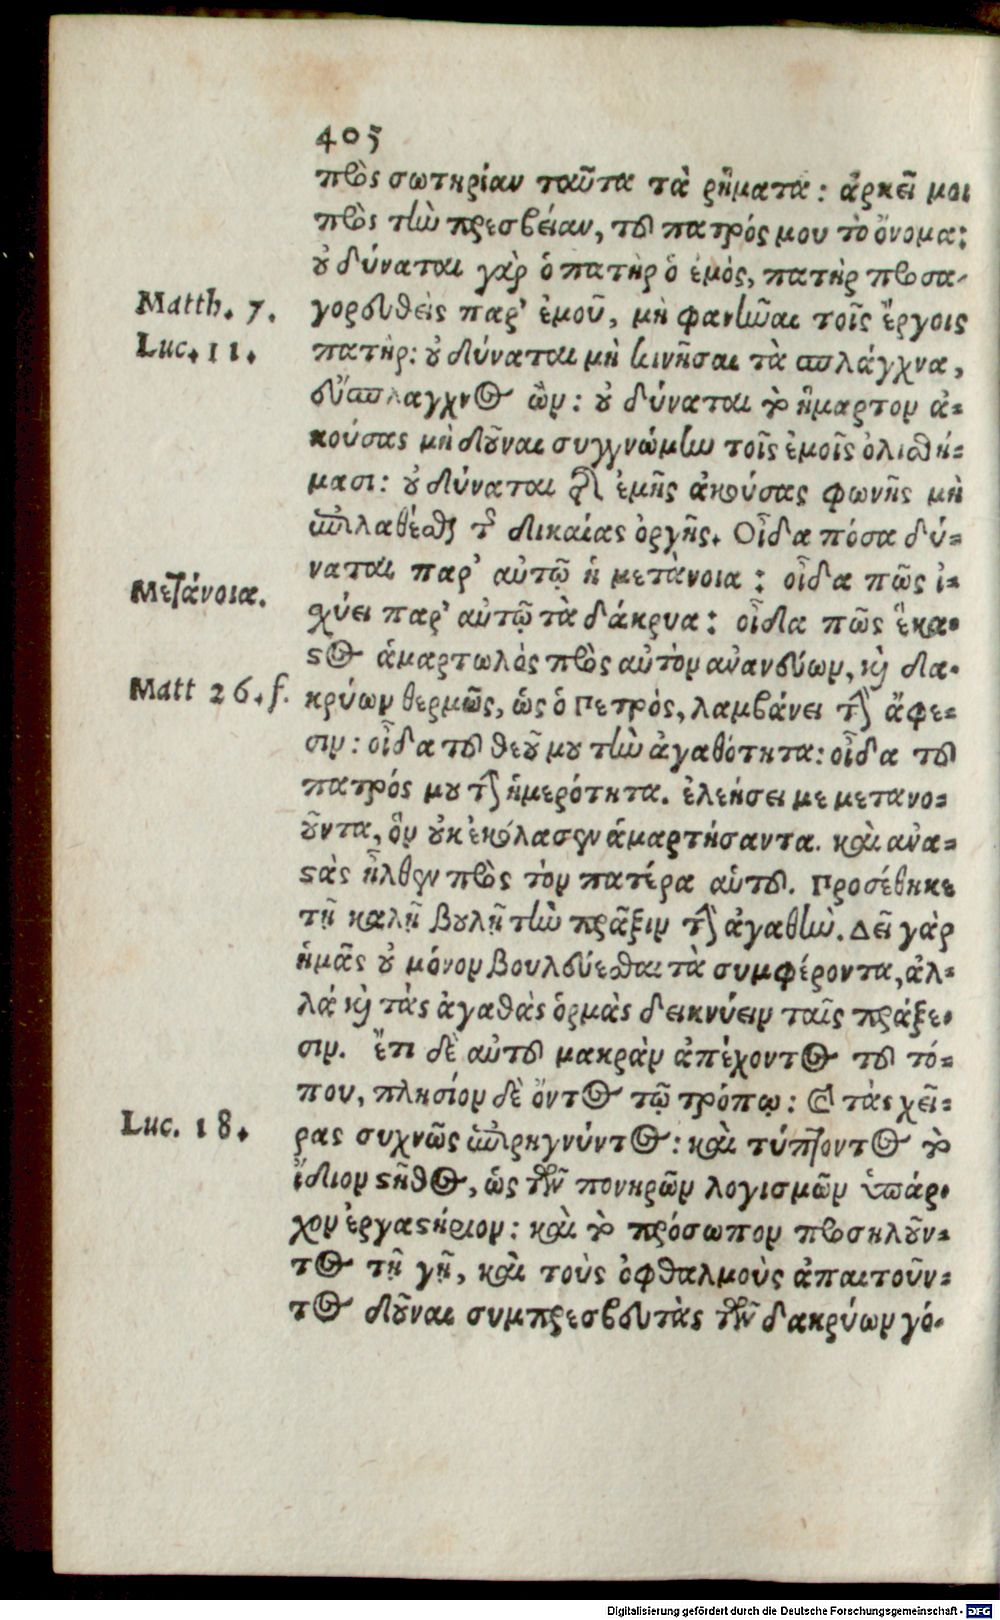 405
πρὸς σωτηρίαν ταῦτα τὰ ῥήματα: ἀρκεῖ μοι
πρὸς τὴν πρεσβείαν, τοῦ πατρός μου τὸ ὄνομα:
οὐ δύναται γὰρ ὁ πατὴρ ὁ ἐμὸς, πατὴρ προσα-
Matth. 7.
γορευθεὶς παρ' ἐμοῦ, μὴ φανῆναι τοῖς ἔργοις
Luc. 11.
πατήρ: οὐ δύναται μὴ κινῆσαι τὰ σπλάγχνα,
εὔσπλαγχνος ὢν: οὐ δύναται τὸ ἥμαρτον ἀ-
κούσας μὴ δοῦναι συγγνώμην τοῖς ἐμοῖς ὀλισθή-
μασι: οὐ δύναται διὰ ἐμῆς ἀκούσας φωνῆς μὴ
ἐπιλαθέσθαι τῆς δικαίας ὀργῆς. Οἶδα πόσα δύ-
ναται παρ' αὐτῷ ἡ μετάνοια: οἶδα πῶς ἰ-
Μετάνοια.
σχύει παρ' αὐτῷ τὰ δάκρυα: οἶδα πῶς ἕκα-
στος ἁμαρτωλὸς πρὸς αὐτὸν ἀνανεύων, καὶ δα-
Matt 26. f.
κρύων θερμῶς, ὡς ὁ Πετρὸς, λαμβάνει τὴν ἄφε-
σιν: οἶδα τοῦ θεοῦ μου τὴν ἀγαθότητα: οἶδα τοῦ
πατρός μου τὴν ἡμερότητα. ἐλεήσει με μετανο-
οῦντα, ὃν οὐκ ἐκόλασεν ἁμαρτήσαντα. καὶ ἀνα-
στὰς ἦλθεν πρὸς τὸν πατέρα αὑτοῦ. Προσέθηκε
τῇ καλῇ βουλῇ τὴν πρᾶξιν τὴν ἀγαθὴν. Δεῖ γὰρ
ἡμᾶς οὐ μόνον βουλεύεσθαι τὰ συμφέροντα, ἀλ-
λά καὶ τὰς ἀγαθὰς ὁρμὰς δεικνύειν ταῖς πράξε-
σιν. Ἔτι δὲ αὐτοῦ μακρὰν ἀπέχοντος τοῦ τό-
που, πλησίον δὲ ὄντος τῷ τρόπῳ: καὶ τὰς χεῖ-
Luc. 18.
ρας συχνῶς ἐπιρηγνύντος: καὶ τύπτοντος τὸ
ἴδιον στῆθος, ὡς τῶν πονηρῶν λογισμῶν ὑπάρ-
χον ἐργαστήριον: καὶ τὸ πρόσωπον προσηλοῦν-
τος τῇ γῇ, καὶ τοὺς ὀφθαλμοὺς ἀπαιτοῦν-
τος δοῦναι συμπρεσβευτὰς τῶν δακρύων γό-
Digitalisierung gefördert durch die Deutsche Forschungsgemeinschaft - DFG